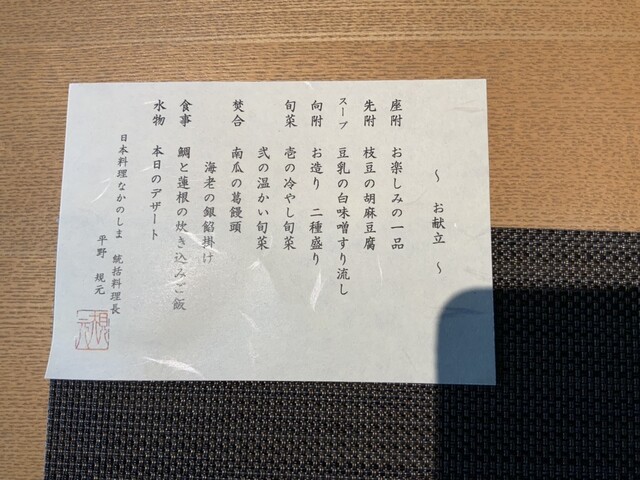 ～ お献立 ～
座附 お楽しみの一品
先附 枝豆の胡麻豆腐
スープ 豆乳の白味噌すり流し
向附 お造り 二種盛り
旬菜 壱の冷やし旬菜
弐の温かい旬菜
焚合 南瓜の葛饅頭
海老の銀餡掛け
食事 鯛と蓮根の炊き込みご飯
水物 本日のデザート
日本料理なかのしま 統括料理長
平野 規元